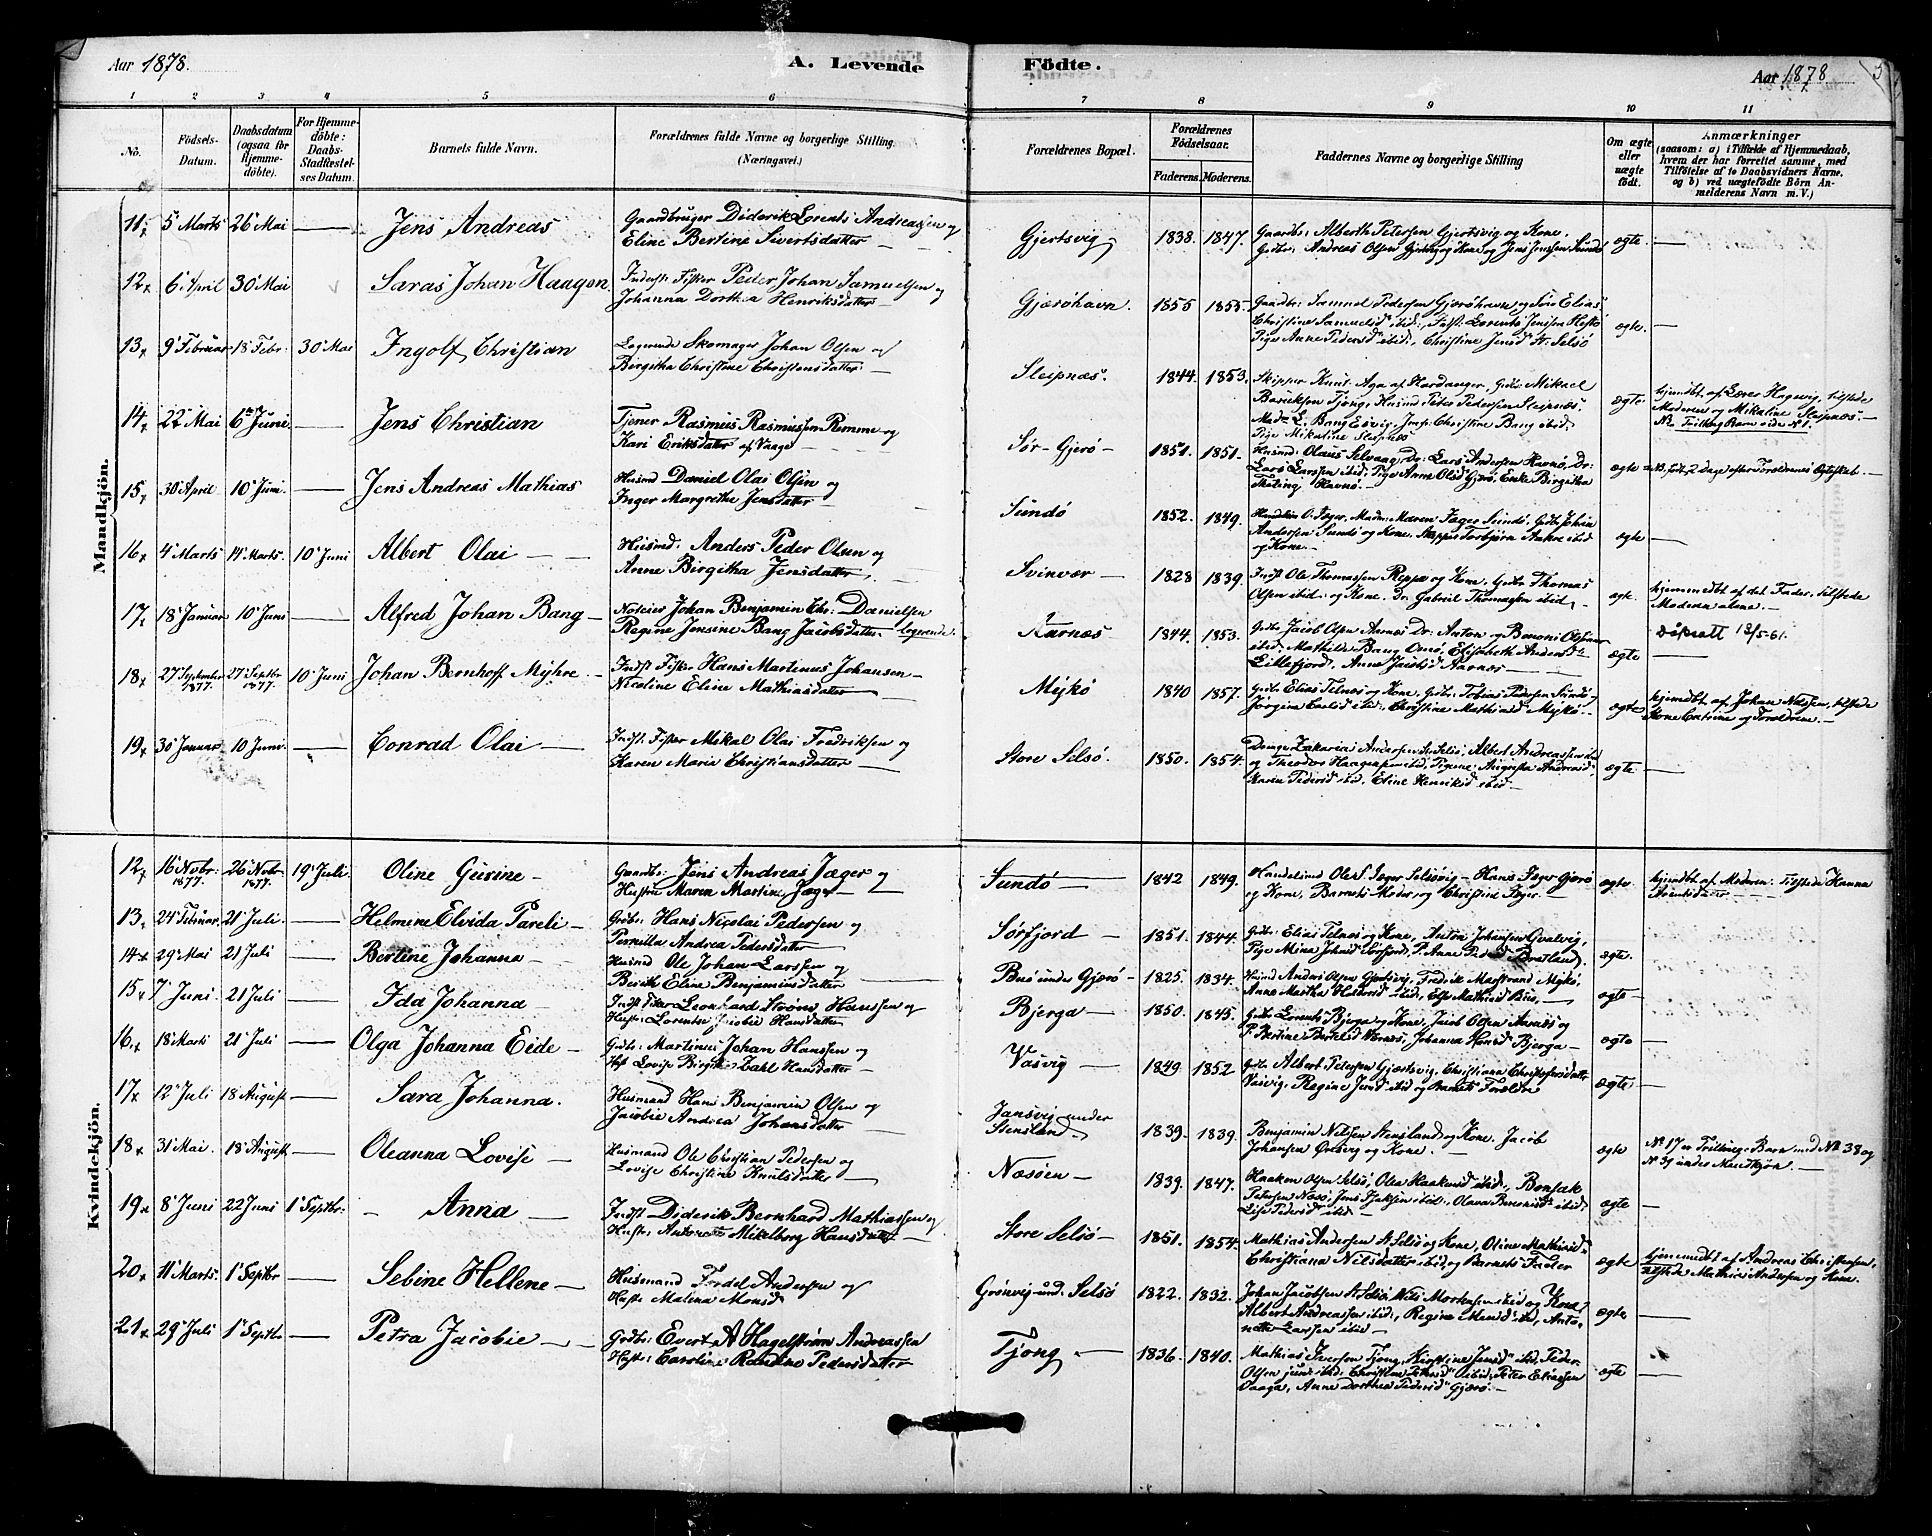 Aar 1878.
A. Levende
Födte.
Aar 1878
5
1 2 3 4 5 6 7 8 9 10 11
No.
Födsels-
Datum.
Daabsdatum
(ogsaa for
Hjemme-
döbte).
For Hjemme-
döbte:
Daabs-
Stadfæstel-
ses Datum.
Barnets fulde Navn.
Forældrenes fulde Navne og borgerlige Stilling
(Næringsvei.)
Forældrenes Bopæl.
Forældrenes
Födselsaar.
Faderens. Moderens.
Faddernes Navne og borgerlige Stilling
Om ægte
eller
uægte
födt.
Anmærkninger
(saasom: a) i Tilfælde af Hjemmedaab,
hvem der har forrettet samme, med
Tilföielse af to Daabsvidners Navne.
og b) ved uægtefödte Börn An-
melderens Navn m. V.)
Mandkjön.
11 5 Marts 26 Mai — Jens Andreas
Gaardbruger Diderik Lorents Andreassen og
Eline Bertine Sivertsdatter —
Gjertsvig 1838. 1847.
Gaardbr: Alberth Petersen Gjertsvig og Kone,
Grdbr: Andreas Olsen og Kone og Jens Jenssen Sundø
ægte —
12 6 April 30 Mai Saras Johan Haagen
Inderst: Fisker Peder Johan Samuelsen og
Johanna Dorthea Henriksdatter —
Gjærøhavn. 1855 1855.
Gaardbr: Samuel Pedersen Gjærøhavn og Søn Elias
Christine Samuelsd ibid:, Lorents Jensen
Pige Anne Pedersd ibid:, Christine Jensd St. Selsø
ægte. —
13 9 Februar 18 Febr. 30 Mai Ingolf Christian
Logerende Skomager Johan Olsen og
Birgitha Christine Christensdatter. —
Sleipnæs. 1844. 1853.
Skipper Knut Aga af Hardanger, Grdbr: Mikael
Tjong, Husmd Peter Pedersen Sleipnæs.
Mad: L. Bang Esvig, Jomfr: Christine Bang ibid
Pige Mikaline Sleipnæs
ægte
Moderen og Mikaline Sleipnæs. —
14 22 Mai 6 Juni. — Jens Christian
Tjener Rasmus Rasmussen Remme og
Kari Eriksdatter af Vaage —
Sör-Gjerö — 1851. 1851.
Husmd: Olaus Selvaag, Dr: Lars Andersen Havnø, Dr:
Lars Larssen ibid: Pige Anne Olsd Gjerø, Enke Birgitha
Havnø. —
ægte
15 30 April 10 Juni. — Jens Andreas Mathias
Husmd Daniel Olai Olsen og
Inger Margrethe Jensdatter —
Sundö 1852. 1849.
Jæger, Mad: Maren Jæger Sundö, Grdbr: Johan
Andersen Sundö og Kone, Torbjörn ibid
og Kone. —
ægte —
16 4 Marts 14 Marts. 10 Juni Albert Olai —
Husmd: Anders Peder Olsen og
Anne Birgitha Jensdatter. —
Svinvær — 1828 1839.
Indst Ole Thomassen Reppa og Kone, Grdbr: Thomas
Olsen ibid: og Kone. Dr. Gabriel Thomassen ibid —
ægte.
hjemmedöbt af det Fader, tilstede
Moderen alene. —
17 18 Januar 10 Juni — Alfred Johan Bang —
Johan Benjamin Chr: Danielsen
Regine Jensine Bang Jacobsdatter. Logerende.
Aarnæs 1844. 1853.
Grdbr: Jacob Olsen Aarnæs Dr: Anton og Benoni Olssen
ibid: Mathilde Bang Onö, Elisabeth Andersd:
Lillefjord, Anne Jacobsd Aarnæs —
ægte
Dåpsatt 13/5-61.
18 27 September 1877. 27 Septbr 1877. 10 Juni Johan Bernhoff Myhre —
Indst Fisker Hans Martinus Johansen —
Nicoline Eline Mathiasdatter —
Mykö 1840 1857.
Grdbr: Elias Telnæs og Kone, Grdbr: Tobias Pedersen Sundö
Jørgine ibid:, Christine Mathiasd Mykö. —
ægte
hjemdbt af Johan Nilsen, tilstede
Kone Catrine og Foreldren. —
19 30 Januar 10 Juni. — Conrad Olai —
Indst: Fisker Mikal Olai Fredriksen og
Karen Maria Christiansdatter —
Store Selsö. 1850. 1854.
Drenge Zakarias Andersen St. Selsö, Albert Andreassen ibid
og Theodor ibid, Pigerne: Augusta Andreasd,
Karen Pedersd ibid, Eline Henriksd ibid —
ægte —
Kvindekjön.
12 16 Novbr: 1877. 26 Novbr. 1877. 19 Juli. Oline Gurine —
Gaardbr: Jens Andreas Jæger og
Hustru Maren Martine Jæger —
Sundö — 1842 1849.
Handelsmd Ole S. Jæger Selsövig — Hans Jæger Gjerö
og Kone, Barnets Moder og Christine Jæger. —
ægte
hjemdbt af Moderen: Tilstede Hanna
13 24 Februar. 21 Juli. — Helmine Elvida Pareli —
Grdbr: Hans Nicolai Pedersen og
Pernilla Andrea Pedersdatter —
Sörfjord — 1851. 1844.
Grdbr: Elias Telnæs og Kone, Anton Johansen Gvalvig,
Pige Mina Johnsd Sörfjord, P. Anne Pedersd Bratland.
ægte. —
14 29 Mai 21 Juli — Bertine Johanna —
Husmd Ole Johan Larssen og
Berith Eline Benjaminsdatter —
Bus under Gjerö — 1825. 1834.
Husmd Andreas Olsen Gjertsvig, Fredrik Mykö,
Anne Martha ibid:, Else Mathisd Bus, —
ægte —
15 7 Juni. 21 Juli — Ida Johanna —
Indst Fisker Leonhard Ström Hanssen og
Hust: Lorentse Jacobie Hansdatter
Bjerga — 1850. 1843.
Grdbr: Lorents Bjerga og Kone, Jacob Olsen Aarnæs og
P. Bertine Bertelsd Værnæs, Johanna Hansd Bjerga —
ægte —
16 18 Marts 21 Juli — Olga Johanna Eide —
Grdbr: Martinus Johan Hanssen og
Hst Lovise Birgitte Zahl Hansdatter
Vasvig — 1849 1852
Grdbr Albert Petersen Gjærtsvig, Christiana Christophersdatter
Vasvig, Regine Jensd ibid og Barnets Foreldre
ægte: —
17 12 Juli 18 August — Sara Johanna.
Husmand Hans Benjamin Olsen og
Jacobie Andrea Johansdatter —
Jansvig under
Stensland 1839. 1839.
Benjamin Nilssen Stensland og Kone. Jacob
Johansen og Kone. —
ægte
No 17 er Trillings-Barn med No 38 og
No 39 under Mandkjön. —
18 31 Mai. 18 August — Oleanna Lovise —
Husmand Ole Christian Pedersen og
Lovise Christine Knutsdatter —
Næsöen — 1839. 1847.
Haaken Olsen Selsö, Olea Haakensd ibid:, Bonsak
Petersen Næsö, Jens ibid:, Olava ibid
Lise Pedersd ibid —
ægte —
19 8 Juni 22 Juni 1 Septbr. — Anna —
Indst Diderik Bernhard Mathiassen og
Hustr: Antonette Mikelborg Hansdatter —
Store Selsö — 1851. 1854.
Mathias Andersen St Selsö og Kone, Oline Mathiasd
Christiana Nilsdatter ibid og Barnets Fader
ægte
hjemmedbt af Andreas Christensen,
tilstede Mathias Andersen og Kone.
20 11 Marts. 1 Septbr — Sebine Hellene —
Husmand Fordel Andersen og
Huste Malena Monsd
Grönvig und. Selsö 1822. 1832.
Johan Jacobsen St Selsö, Nils Mortensen ibid og Kone,
Albert Andreassen ibid:, Regine Monsd ibid, Anto-
nette Larssen ibid —
ægte —
21 29 Juli 1 Septbr. — Petra Jacobie —
Grdbr: Evert A Hagelström Andreassen
Huste: Caroline Randine Pedersdatter
Tjong — 1836. 1840.
Mathias Iversen Tjong, Kirstine Jensd ibid, Peder
Olsen jun: ibid: Christine ibid: Peter Eliassen
Vaaga, Anne Dorthea Pedersd Gjerö. —
ægte —